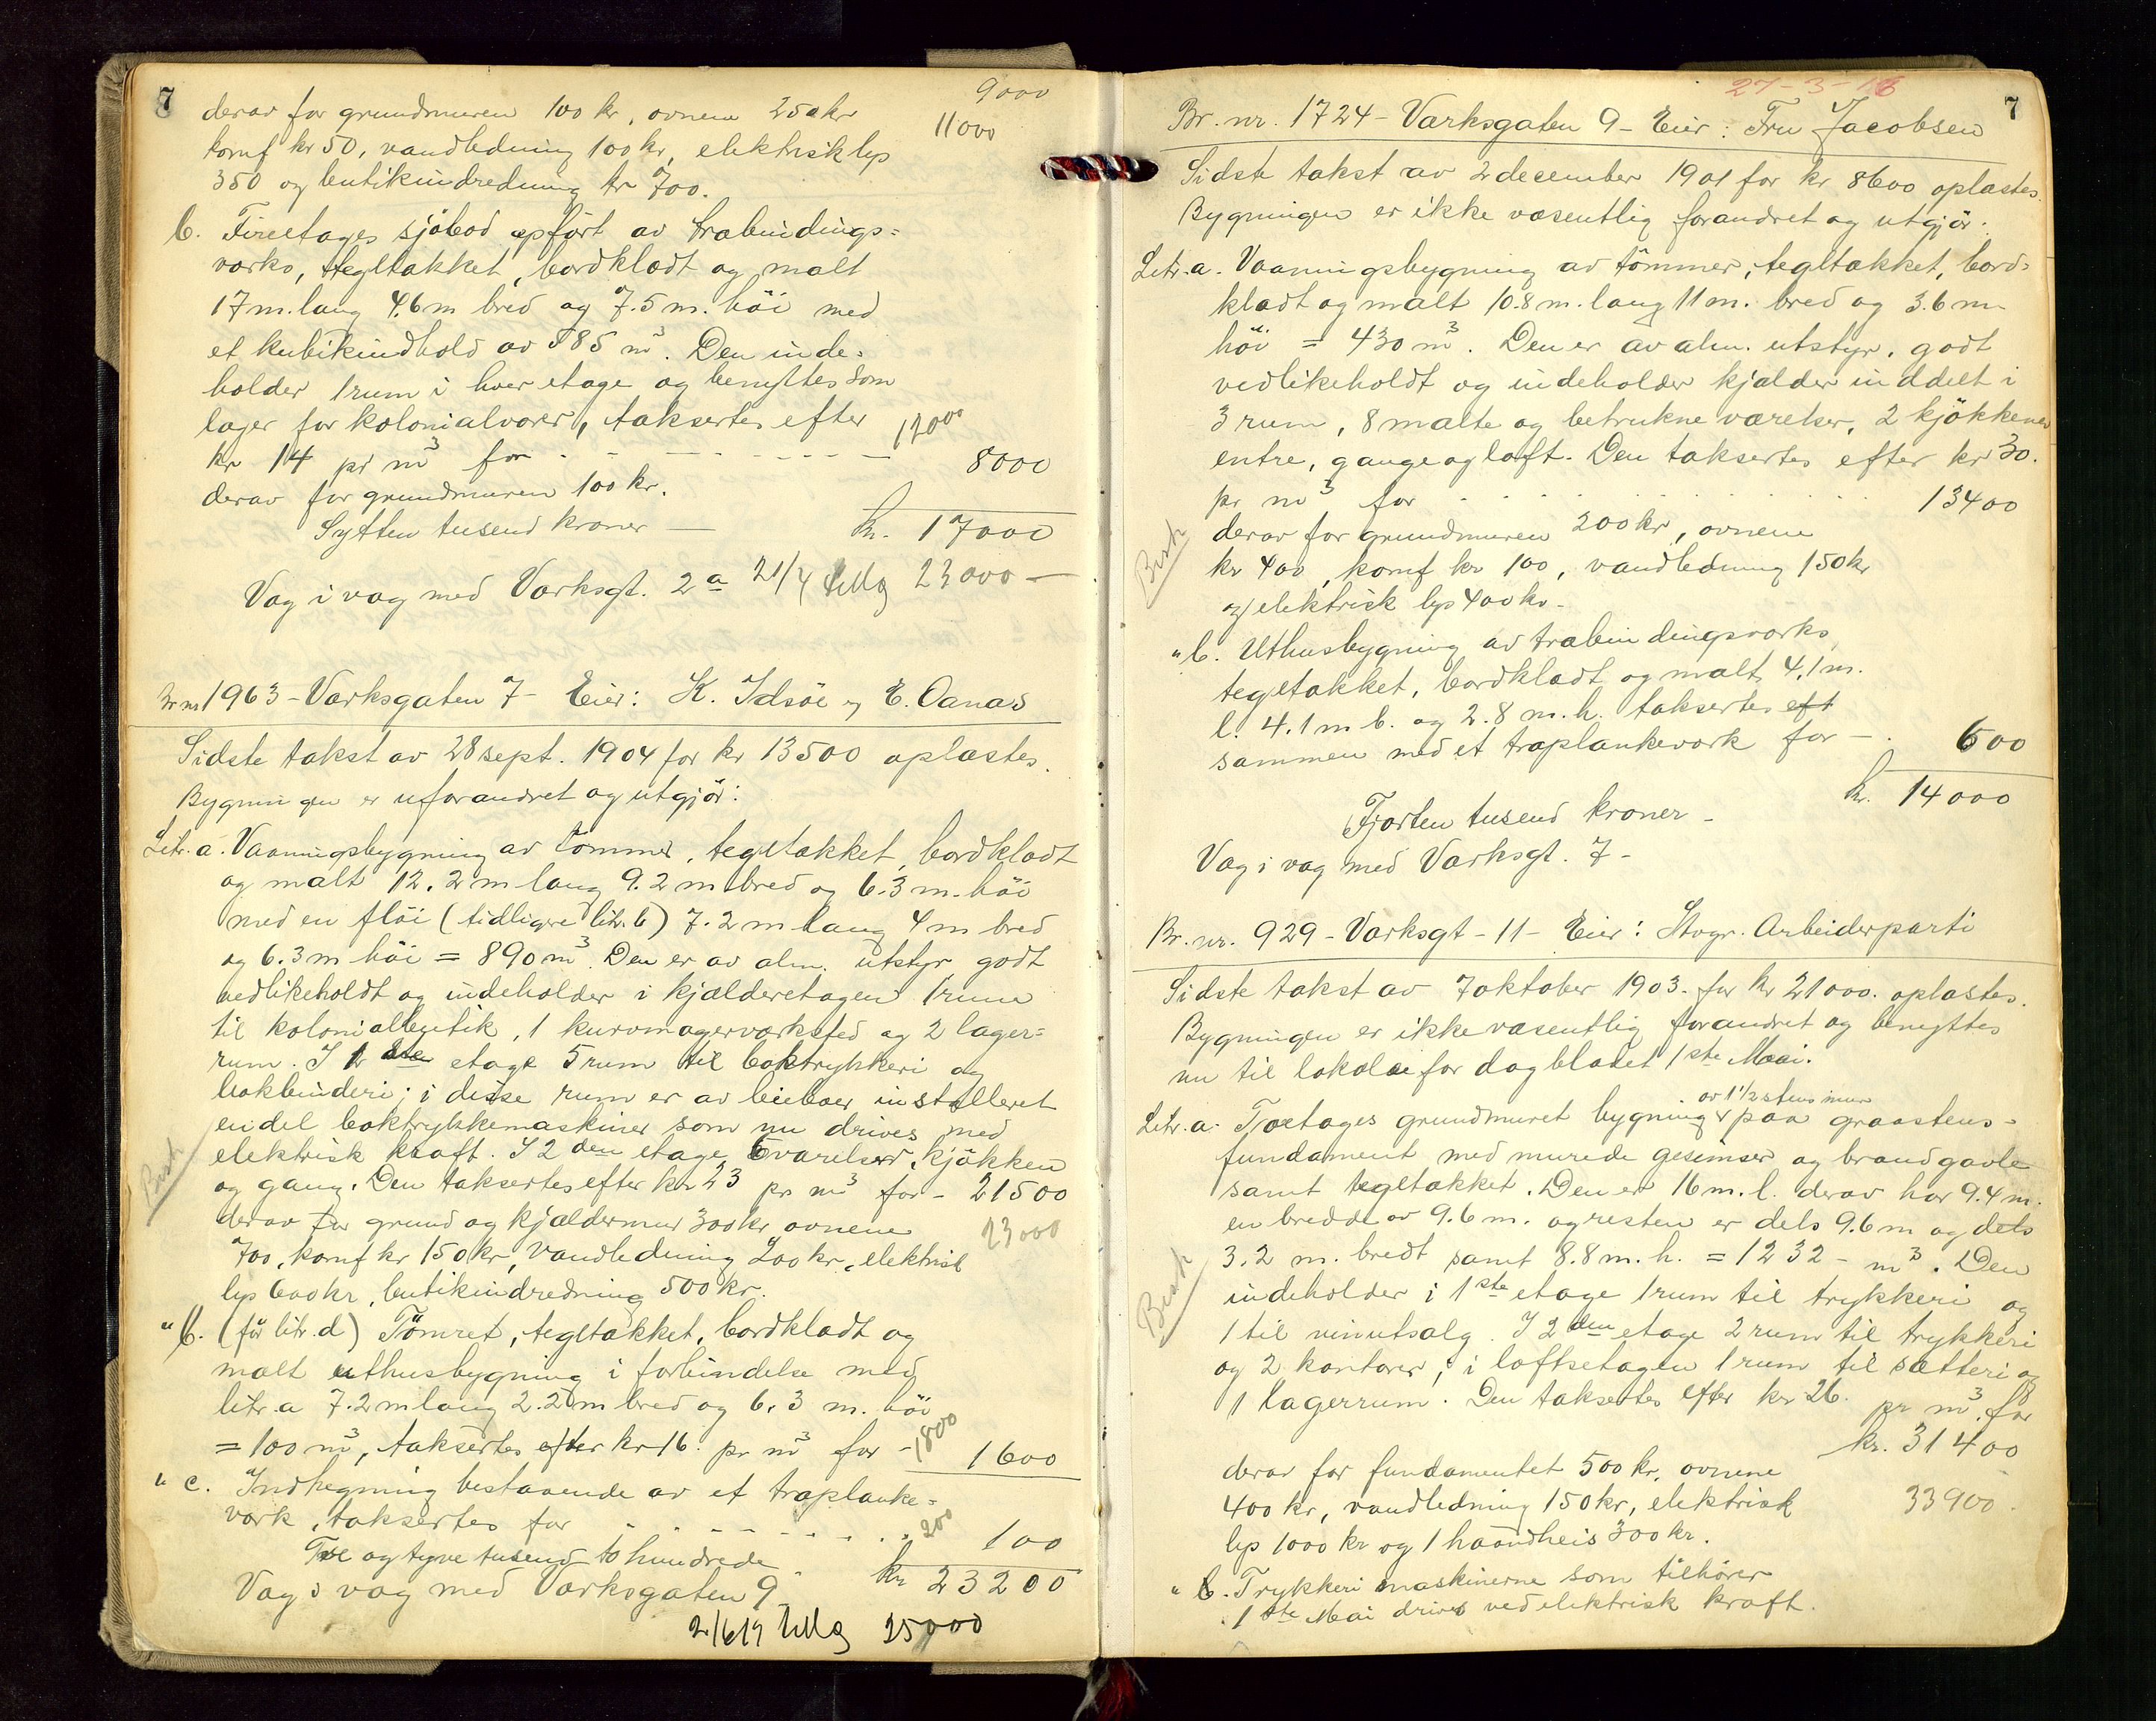 7
9000
derav for grundmuren 100 kr, ovnene 250 kr
11000
komf kr 50, vandledning 100 kr, elektrisk lys
350 og butikindredning kr 700.
b. Fireetages sjøbod opført av træbindings-
verks, tegltækket, bordklædt og malt
17 m. lang 4.6 m bred og 7.5 m. høi med
et kubikindhold av 585 m³. Den inde-
holder 1 rum i hver etage og benyttes som
lager for kolonialvarer, taksertes efter
kr 14 pr m³ for - - - 8000
12000
derav for grundmuren 100 kr.
Sytten tusend kroner — kr. 17000
Væg i væg med Verksgt. 2a 21/4 tillæg 23000 —
Br nr 1963 - Verksgaten 7 - Eier: K. Idsøe og E. Oanæs
Sidste takst av 28 sept. 1904 for kr 13500 oplæstes.
Bygningen er uforandret og utgjør:
Litr. a. Vaaningsbygning av tømmer, tegltækket, bordklædt
og malt 12.2 m lang 9.2 m bred og 6.3 m. høi
med en fløi (tidligere litr. b) 7.2 m lang 4 m bred
og 6.3 m høi = 890 m³. Den er av alm. utstyr, godt
vedlikeholdt og indeholder i kjælderetagen 1 rum
til kolonialbutik, 1 kurvmagerverksted og 2 lager-
rum. I 1ste etage 5 rum til boktrykkeri og
bokbinderi; i disse rum er av leieboer installeret
endel boktrykkemaskiner som nu drives med
elektrisk kraft. I 2den etage 6 værelser, kjøkken
Besk
og gang. Den taksertes efter kr 23 pr m³ for - 21500
derav for grund og kjældermur 300 kr ovnene
23000
700, komf kr 150 kr, vandledning 200 kr, elektrisk
lys 600 kr, butikindredning 500 kr.
" b. (før litr. d) Tømret, tegltækket, bordklædt og
malt uthusbygning i forbindelse med
litr. a 7.2 m lang 2.2 m bred og 6.3 m. høi
= 100 m³, taksertes efter kr 16. pr m³ for - 1600
1800
" c. Indhegning bestaaende av et træplanke-
verk, taksertes for - - - 100
200
Tre og tyve tusend to hundrede - kr 23200
Væg i væg med Verksgaten 9
2/6 17 tillæg 25000
27-3-16
7
Br. nr. 1724 - Verksgaten 9 - Eier: Fru Jacobsen
Sidste takst av 2 december 1901 for kr 8600 oplæstes.
Bygningen er ikke væsentlig forandret og utgjør.
Litr. a. Vaaningsbygning av tømmer, tegltækket, bord-
klædt og malt 10.8 m. lang 11 m. bred og 3.6 m
høi = 430 m³. Den er av alm. utstyr, godt
vedlikeholdt og indeholder kjælder inddelt i
3 rum, 8 malte og betrukne værelser, 2 kjøkkener
entre, gange og loft. Den taksertes efter kr 30.
pr m³ for - - - 13400
Besk
derav for grundmuren 200 kr, ovnene
kr 400, komf kr 100, vandledning 150 kr
og elektrisk lys 400 kr.
" b. Uthusbygning av træbindingsverks
tegltækket, bordklædt og malt, 4.1 m.
l. 4.1 m b. og 2.8 m. h. taksertes eft
sammen med et træplankeverk for - 600
kr. 14000
Fjorten tusend kroner -
Væg i væg med Verksgt. 7 -
Br. nr. 929 - Verksgt - 11 - Eier: Stvgr. Arbeiderparti
Sidste takst av 7 oktober 1903. for kr 21000. oplæstes.
Bygningen er ikke væsentlig forandret og benyttes
nu til lokale for dagbladet 1ste Mai.
av 1 1/2 stens mur
Litr. a. Toetages grundmuret bygning paa graastens-
fundament med murede gesimser og brandgavle
samt tegltækket. Den er 16 m. l. derav har 9.4 m.
en bredde av 9.6 m. og resten er dels 9.6 m og dels
3.2 m. bredt samt 8.8 m. h. = 1232 - m³. Den
Besk
indeholder i 1ste etage 1 rum til trykkeri og
1 til vinutsalg. I 2den etage 2 rum til trykkeri
og 2 kontorer; i loftsetagen 1 rum til sætteri og
1 lagerrum. Den taksertes efter kr 26. pr m³. for
kr. 31400
derav for fundamentet 500 kr, ovnene
400 kr, vandledning 150 kr, elektrisk
33900.
lys 1000 kr og 1 haandheis 300 kr.
" b. Trykkeri maskinerne som tilhører
1ste Mai drives ved elektrisk kraft.